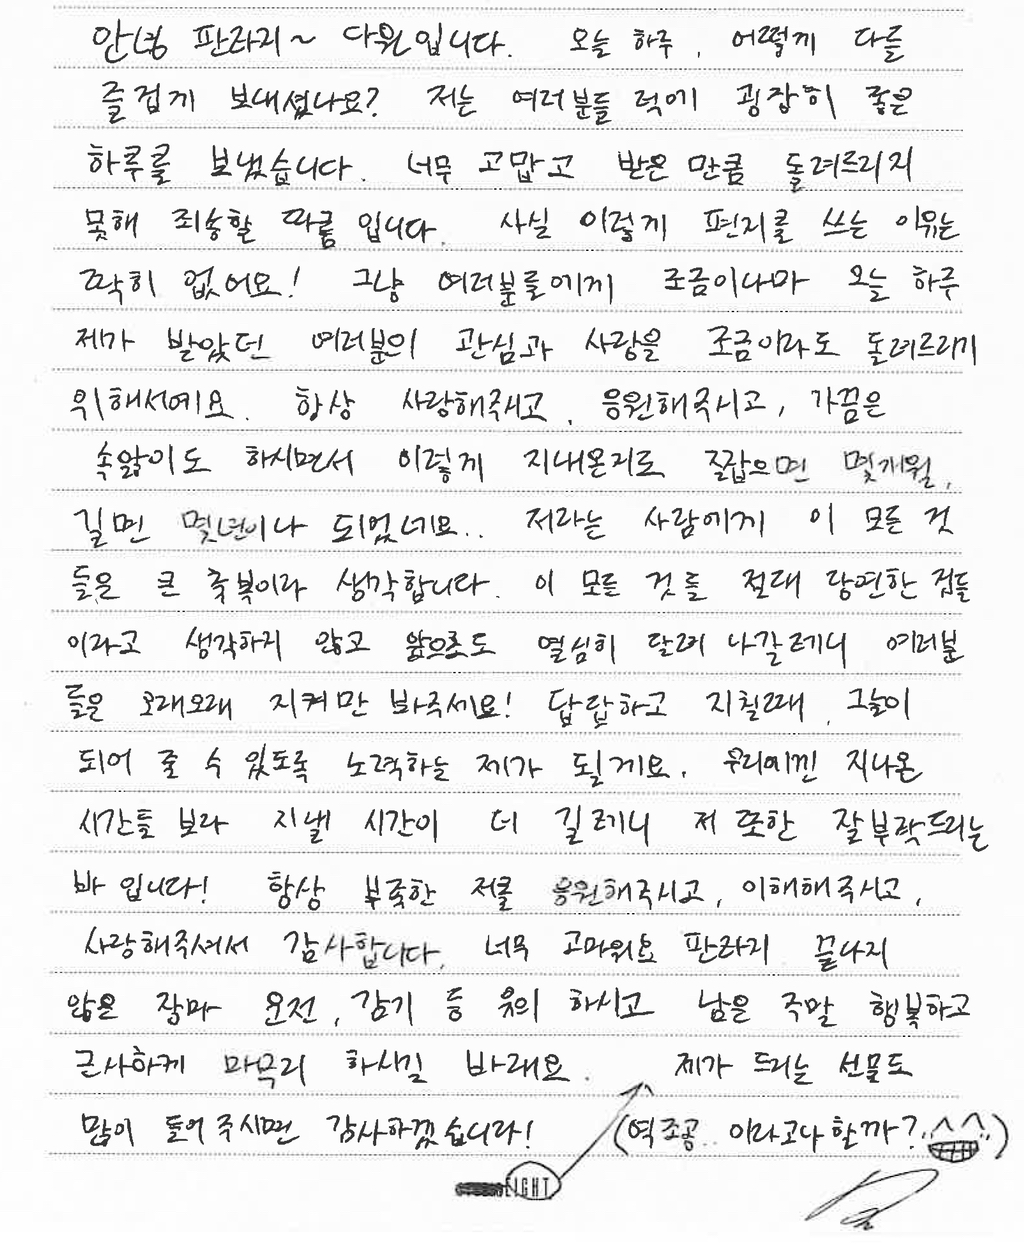 안녕 판타지~ 다원입니다. 오늘 하루, 어떻게 다들
즐겁게 보내셨나요? 저는 여러분들 덕에 굉장히 좋은
하루를 보냈습니다. 너무 고맙고 받은 만큼 돌려드리지
못해 죄송할 따름 입니다. 사실 이렇게 편지를 쓰는 이유는
딱히 없어요! 그냥 여러분들에게 조금이나마 오늘 하루
제가 받았던 여러분의 관심과 사랑을 조금이라도 돌려드리기
위해서예요. 항상 사랑해주시고, 응원해주시고, 가끔은
속앓이도 하시면서 이렇게 지내온지도 짧으면 몇개월,
길면 몇년이나 되었네요.. 저라는 사람에게 이 모든 것
들은 큰 축복이라 생각합니다. 이 모든 것들 절대 당연한 점들
이라고 생각하지 않고 앞으로도 열심히 달려 나갈테니 여러분
들은 오래오래 지켜만 봐주세요! 답답하고 지칠때, 그늘이
되어 줄 수 있도록 노력하는 제가 될게요. 우리에낀 지나온
시간들 보다 지낼 시간이 더 길테니 저 또한 잘부탁드리는
바 입니다! 항상 부족한 저를 응원해주시고, 이해해주시고,
사랑해주셔서 감사합니다. 너무 고마워요 판타지 끝나지
않은 장마 운전, 감기 등 유의 하시고 남은 주말 행복하고
근사하게 마무리 하시길 바래요. 제가 드리는 선물도
많이 들어주시면 감사하겠습니다! (역조공.. 이라고나 할까?
LIGHT